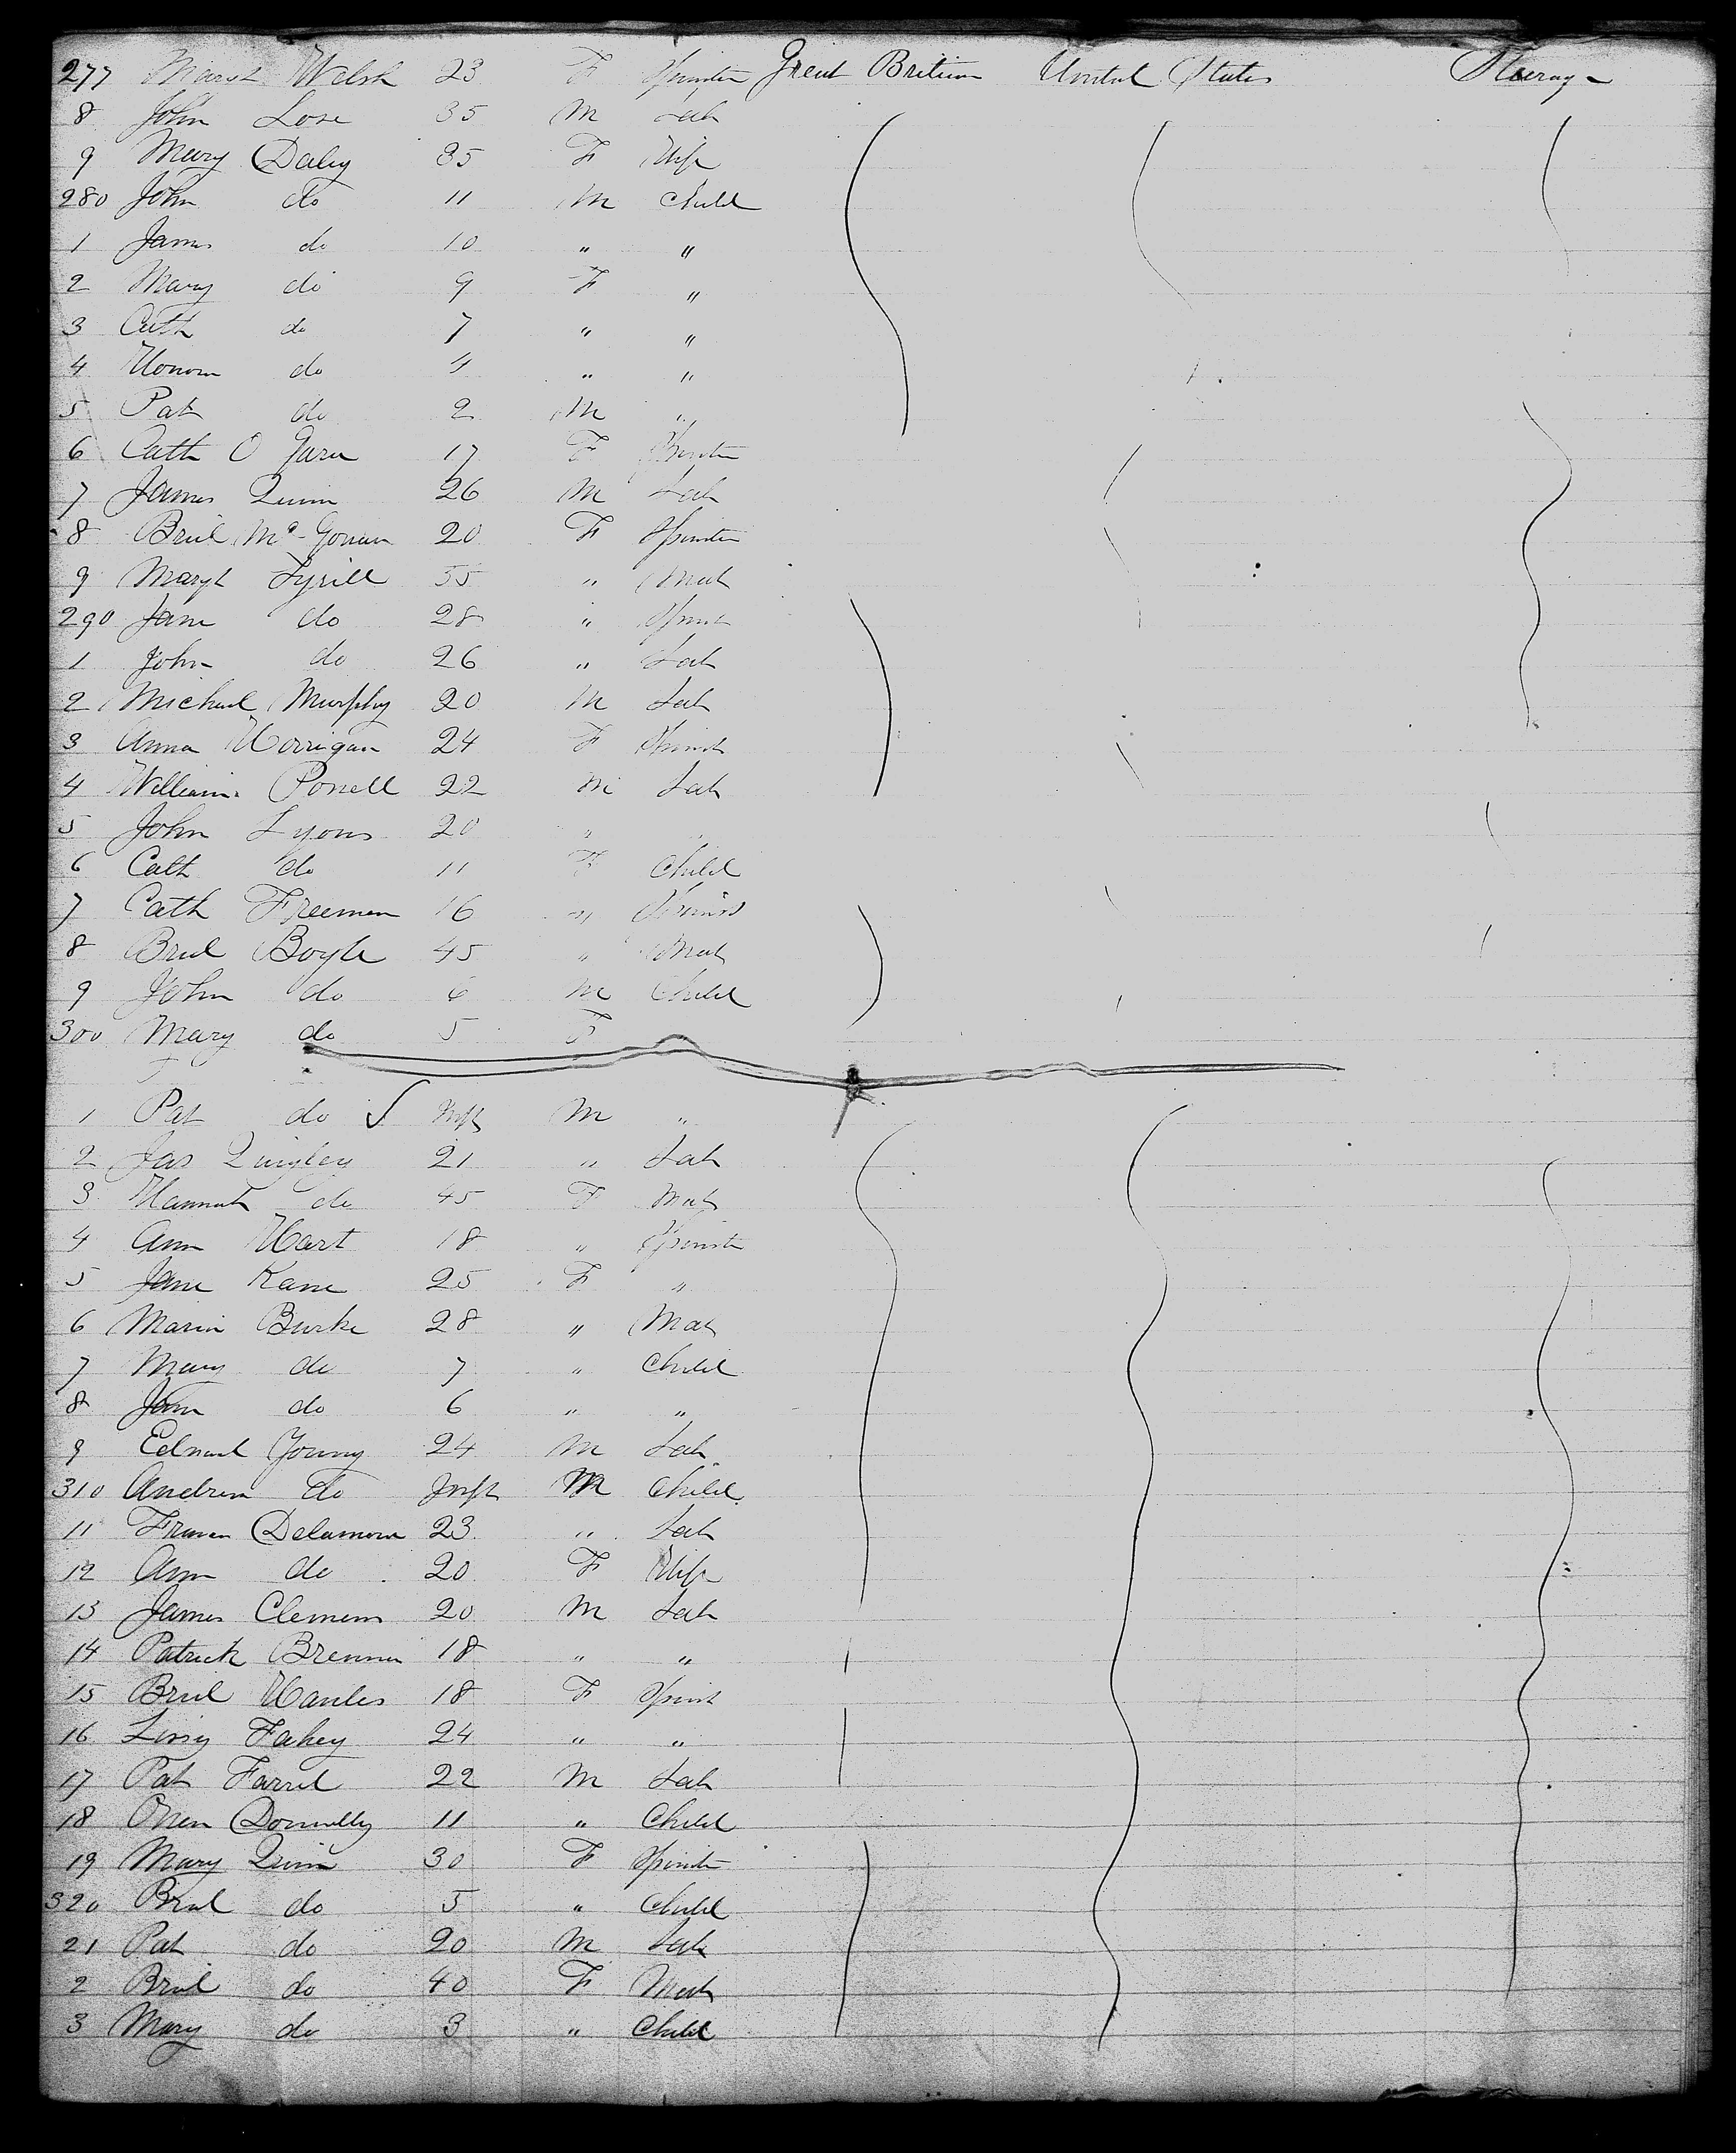 277 Margt Welsh 23 F Spinster Great Britian United States Steerage
8 John Lose 35 M Lab
9 Mary Daley 35 F Wife
280 John do 11 M Child
1 James do 10 " "
2 Mary do 9 F "
3 Cath do 7 " "
4 Honora do 4 " "
5 Pat do 2 M "
6 Cath O Gara 17 F Spinster
7 James Quinn 26 M Lab
8 Brid Mc Gowan 20 F Spinster
9 Margt Tyrill 55 " Mat
290 Jane do 28 " Spinst
1 John do 26 " Lab
2 Michael Murphy 20 M Lab
3 Anna Horrigan 24 F Spinst
4 William Powell 22 M Lab
5 John Lyons 20 " "
6 Cath do 11 F Child
7 Cath Freeman 16 " Spinst
8 Brid Boyle 45 " Mat
9 John do 6 M Child
300 Mary do 5 F
1 Pat do Inft M "
2 Jas Quigley 21 " Lab
3 Hannah do 45 F Mat
4 Ann Hart 18 " Spinster
5 Jane Kane 25 F "
6 Maria Burke 28 " Mat
7 Mary do 7 " Child
8 Jane do 6 " "
9 Edward Young 24 M Lab
310 Andrew do Inft M Child
11 Francis Delamore 23 " Lab
12 Ann do 20 F Wife
13 James Clemens 20 M Lab
14 Patrick Brennan 18 " "
15 Brid 18 F Spinst
16 Fahey 24 " "
17 Pat Farrel 22 M Lab
18 Owen Donnelly 11 " Child
19 Mary Quinn 30 F Spinster
320 Brid do 5 " Child
21 Pat do 20 M Lab
2 Brid do 40 F Mat
3 Mary do 3 " Child